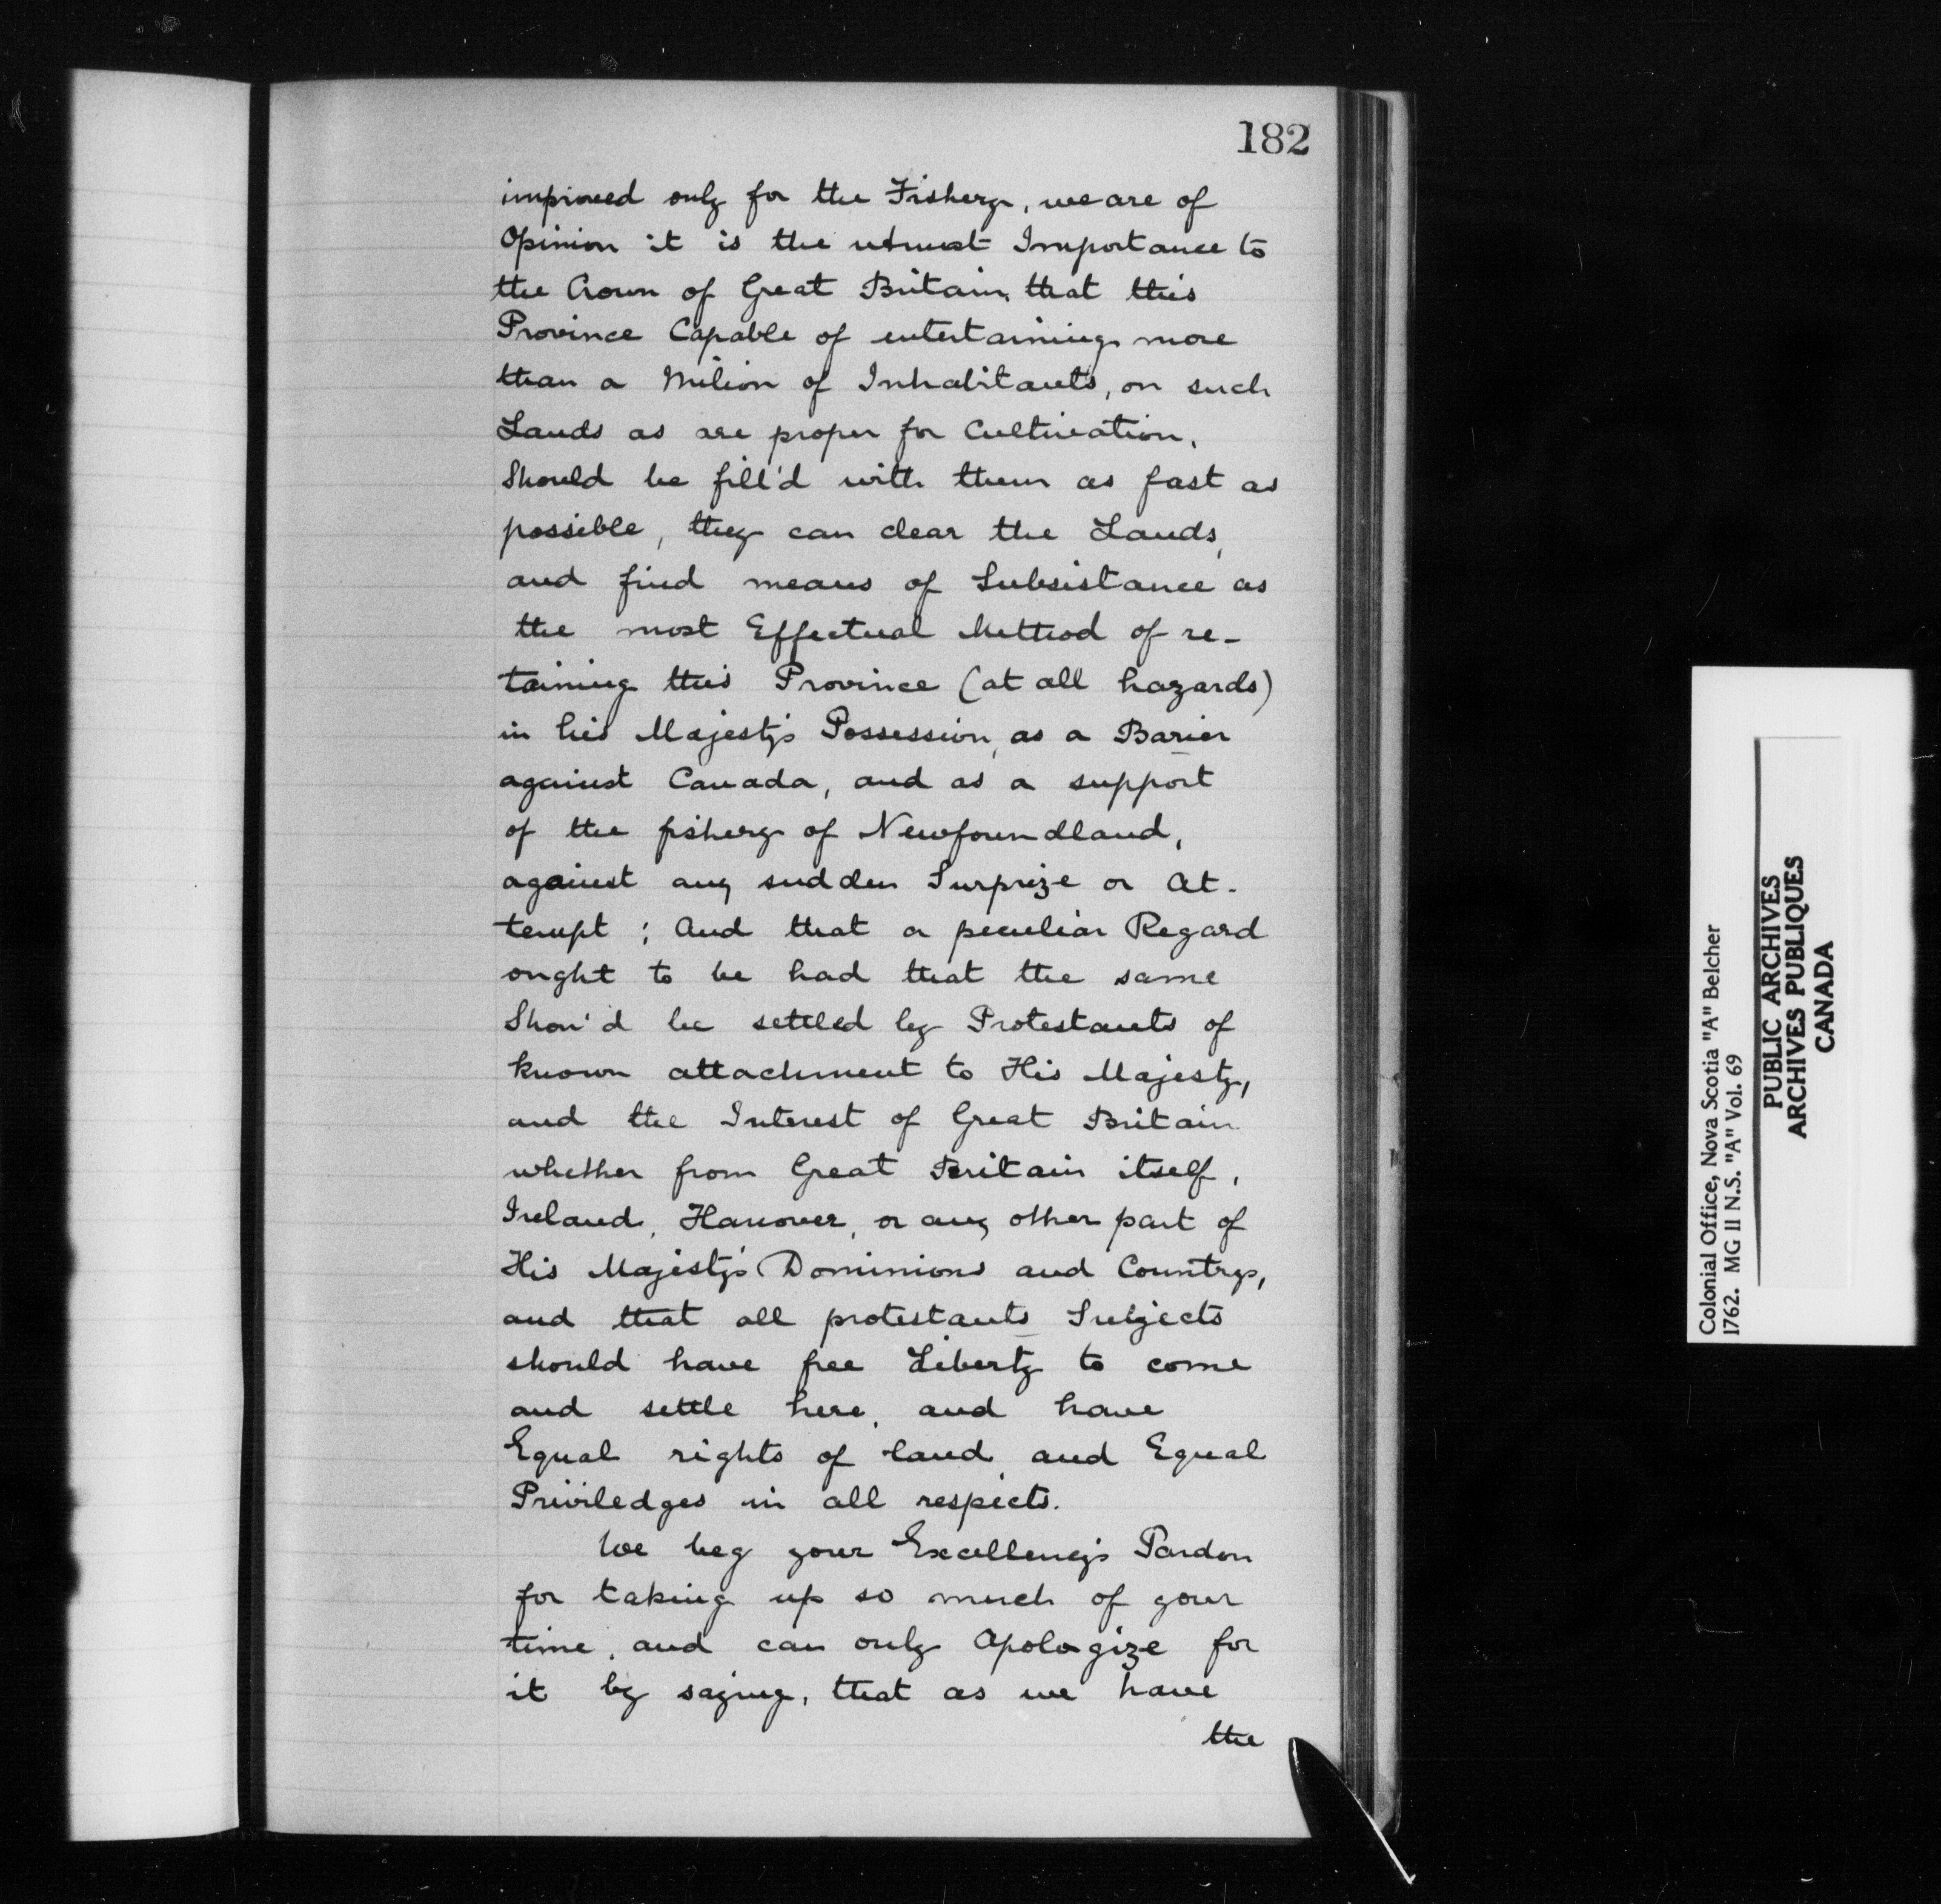 182
improved only for the Fishery, we are of
Opinion it is the utmost Importance to
the Crown of Great Britain, that this
Province Capable of entertaining more
than a Milion of Inhabitants, on such
Lands as are proper for Cultivation,
Should be fill'd with them as fast as
possible, they can clear the Lands,
and find means of Subsistance as
the most Effectual Method of re-
taining this Province (at all hazards)
in his Majesty's Possession, as a Barier
against Canada, and as a support
of the fishery of Newfoundland,
against any sudden Surprize or At-
tempt; And that a peculiar Regard
ought to be had that the same
Shou'd be settled by Protestants of
known attachment to His Majesty,
and the Interest of Great Britain
whether from Great Britain itself,
Ireland, Hanover, or any other part of
His Majesty's Dominions and Country,
and that all protestants Subjects
should have free Liberty to come
and settle here, and have
Equal rights of land, and Equal
Priviledges in all respects.
We beg your Excellency's Pardon
for taking up so much of your
time, and can only Apologize for
it by saying, that as we have
the
Colonial Office, Nova Scotia "A" Belcher
1762. MG 11 N.S. "A" Vol. 69
PUBLIC ARCHIVES
ARCHIVES PUBLIQUES
CANADA